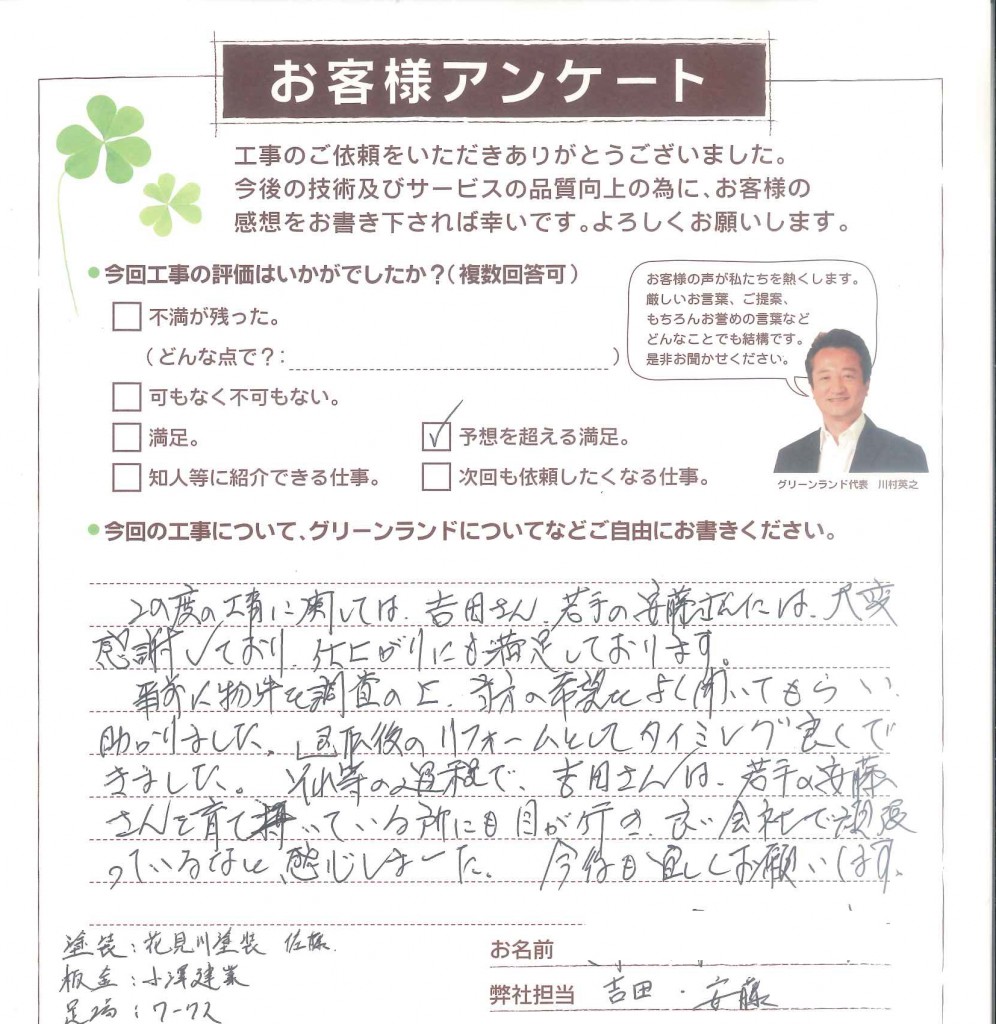 お客様アンケート
工事のご依頼をいただきありがとうございました。
今後の技術及びサービスの品質向上の為に、お客様の
感想をお書き下されば幸いです。よろしくお願いします。
●今回工事の評価はいかがでしたか？（複数回答可）
不満が残った。
（どんな点で？：）
可もなく不可もない。
満足。
予想を超える満足。
知人等に紹介できる仕事。
次回も依頼したくなる仕事。
お客様の声が私たちを熱くします。
厳しいお言葉、ご提案、
もちろんお誉めの言葉など
どんなことでも結構です。
是非お聞かせください。
グリーンランド代表 川村英之
●今回の工事について、グリーンランドについてなどご自由にお書きください。
この度の工事に関しては、吉田さん、若手の安藤さんには、大変
感謝しており、仕上がりにも満足しております。
事前に物件を調査の上、当方の希望をよく聞いてもらい、
助かりました。退職後のリフォームとしてタイミング良くで
きました。それ等の過程で、吉田さんは、若手の安藤
さんを育て いている所にも目が行き、良い会社で頑張
っているなと感じました。今後も宜しくお願いします。
塗装：花見川塗装 佐藤
板金：小澤建業
足場：ワークス
お名前
弊社担当 吉田・安藤